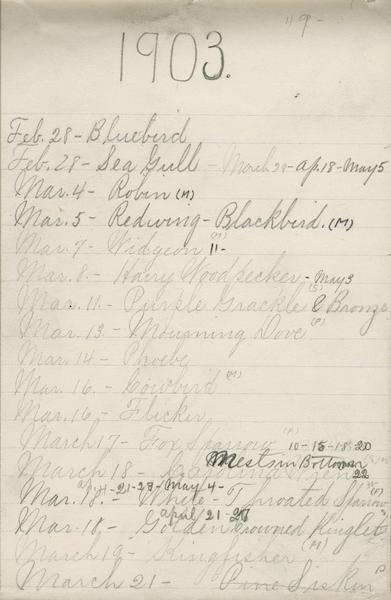 "9-
1903.
Feb. 28 - Bluebird
Feb. 28 - Sea Gull - March 29 - Ap. 18 - May 5
Mar. 4 - Robin (M)
Mar. 5 - Redwing - Blackbird. (M)
Mar. 7 - Widgeon (M) 11 -
Mar. 8. - Hairy Woodpecker - May 3
Mar. 11. - Purple Grackle (S) & Bronze
Mar. 13 - Mourning Dove (P)
Mar. 14 - Phoebe
Mar. 16. - Cowbird (M)
Mar. 16. - Flicker
March 17 - Fox Sparrow (P) 10-15-18-20
March 18 - Wren 22
Ap. 18-21-27 - May 4
Mar. 18. - White - Throated Sparrow (P)
April 21-27
Mar. 18. - Golden Crowned Kinglet
March 19 - Kingfisher (M)
March 21 - Pine Siskin (P)